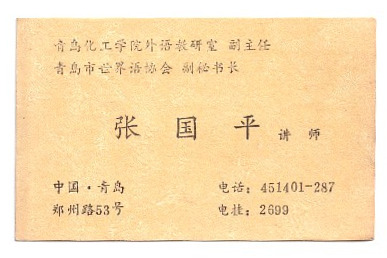 青岛化工学院外语教研室 副主任
青岛市世界语协会 副秘书长
张国平 讲师
中国·青岛 电话：451401-287
郑州路53号 电挂：2699